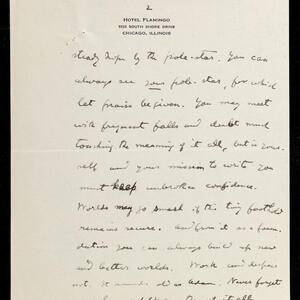 2
HOTEL FLAMINGO
5520 SOUTH SHORE DRIVE
CHICAGO, ILLINOIS
steady by the pole-star. You can
always see your pole-star, for which
let praise be given. You may meet
with frequent falls and doubt much
touching the meaning of it all, but in your-
self and your mission to write you
must keep unbroken confidence.
Worlds may go smash if this tiny foothold
remains secure. And from it as a foun-
dation you can always build up new
and better worlds. Work and despair
not. It sounds old as Adam. Never forget
it all